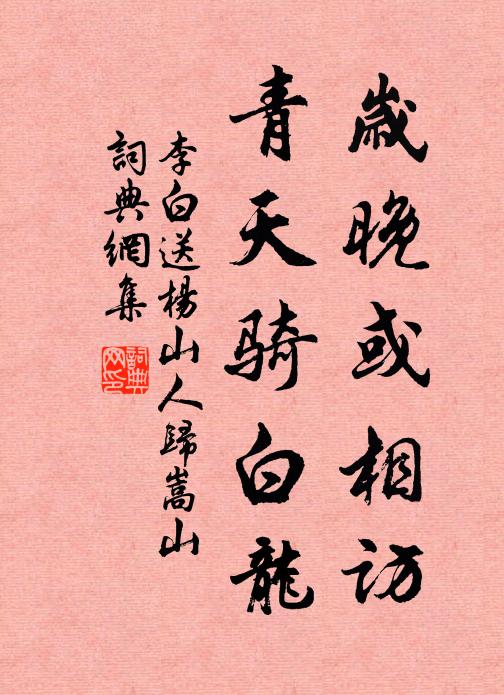 歲晚或相訪
青天騎白龍
李白送楊山人歸嵩山
詞典網集
詞典網印